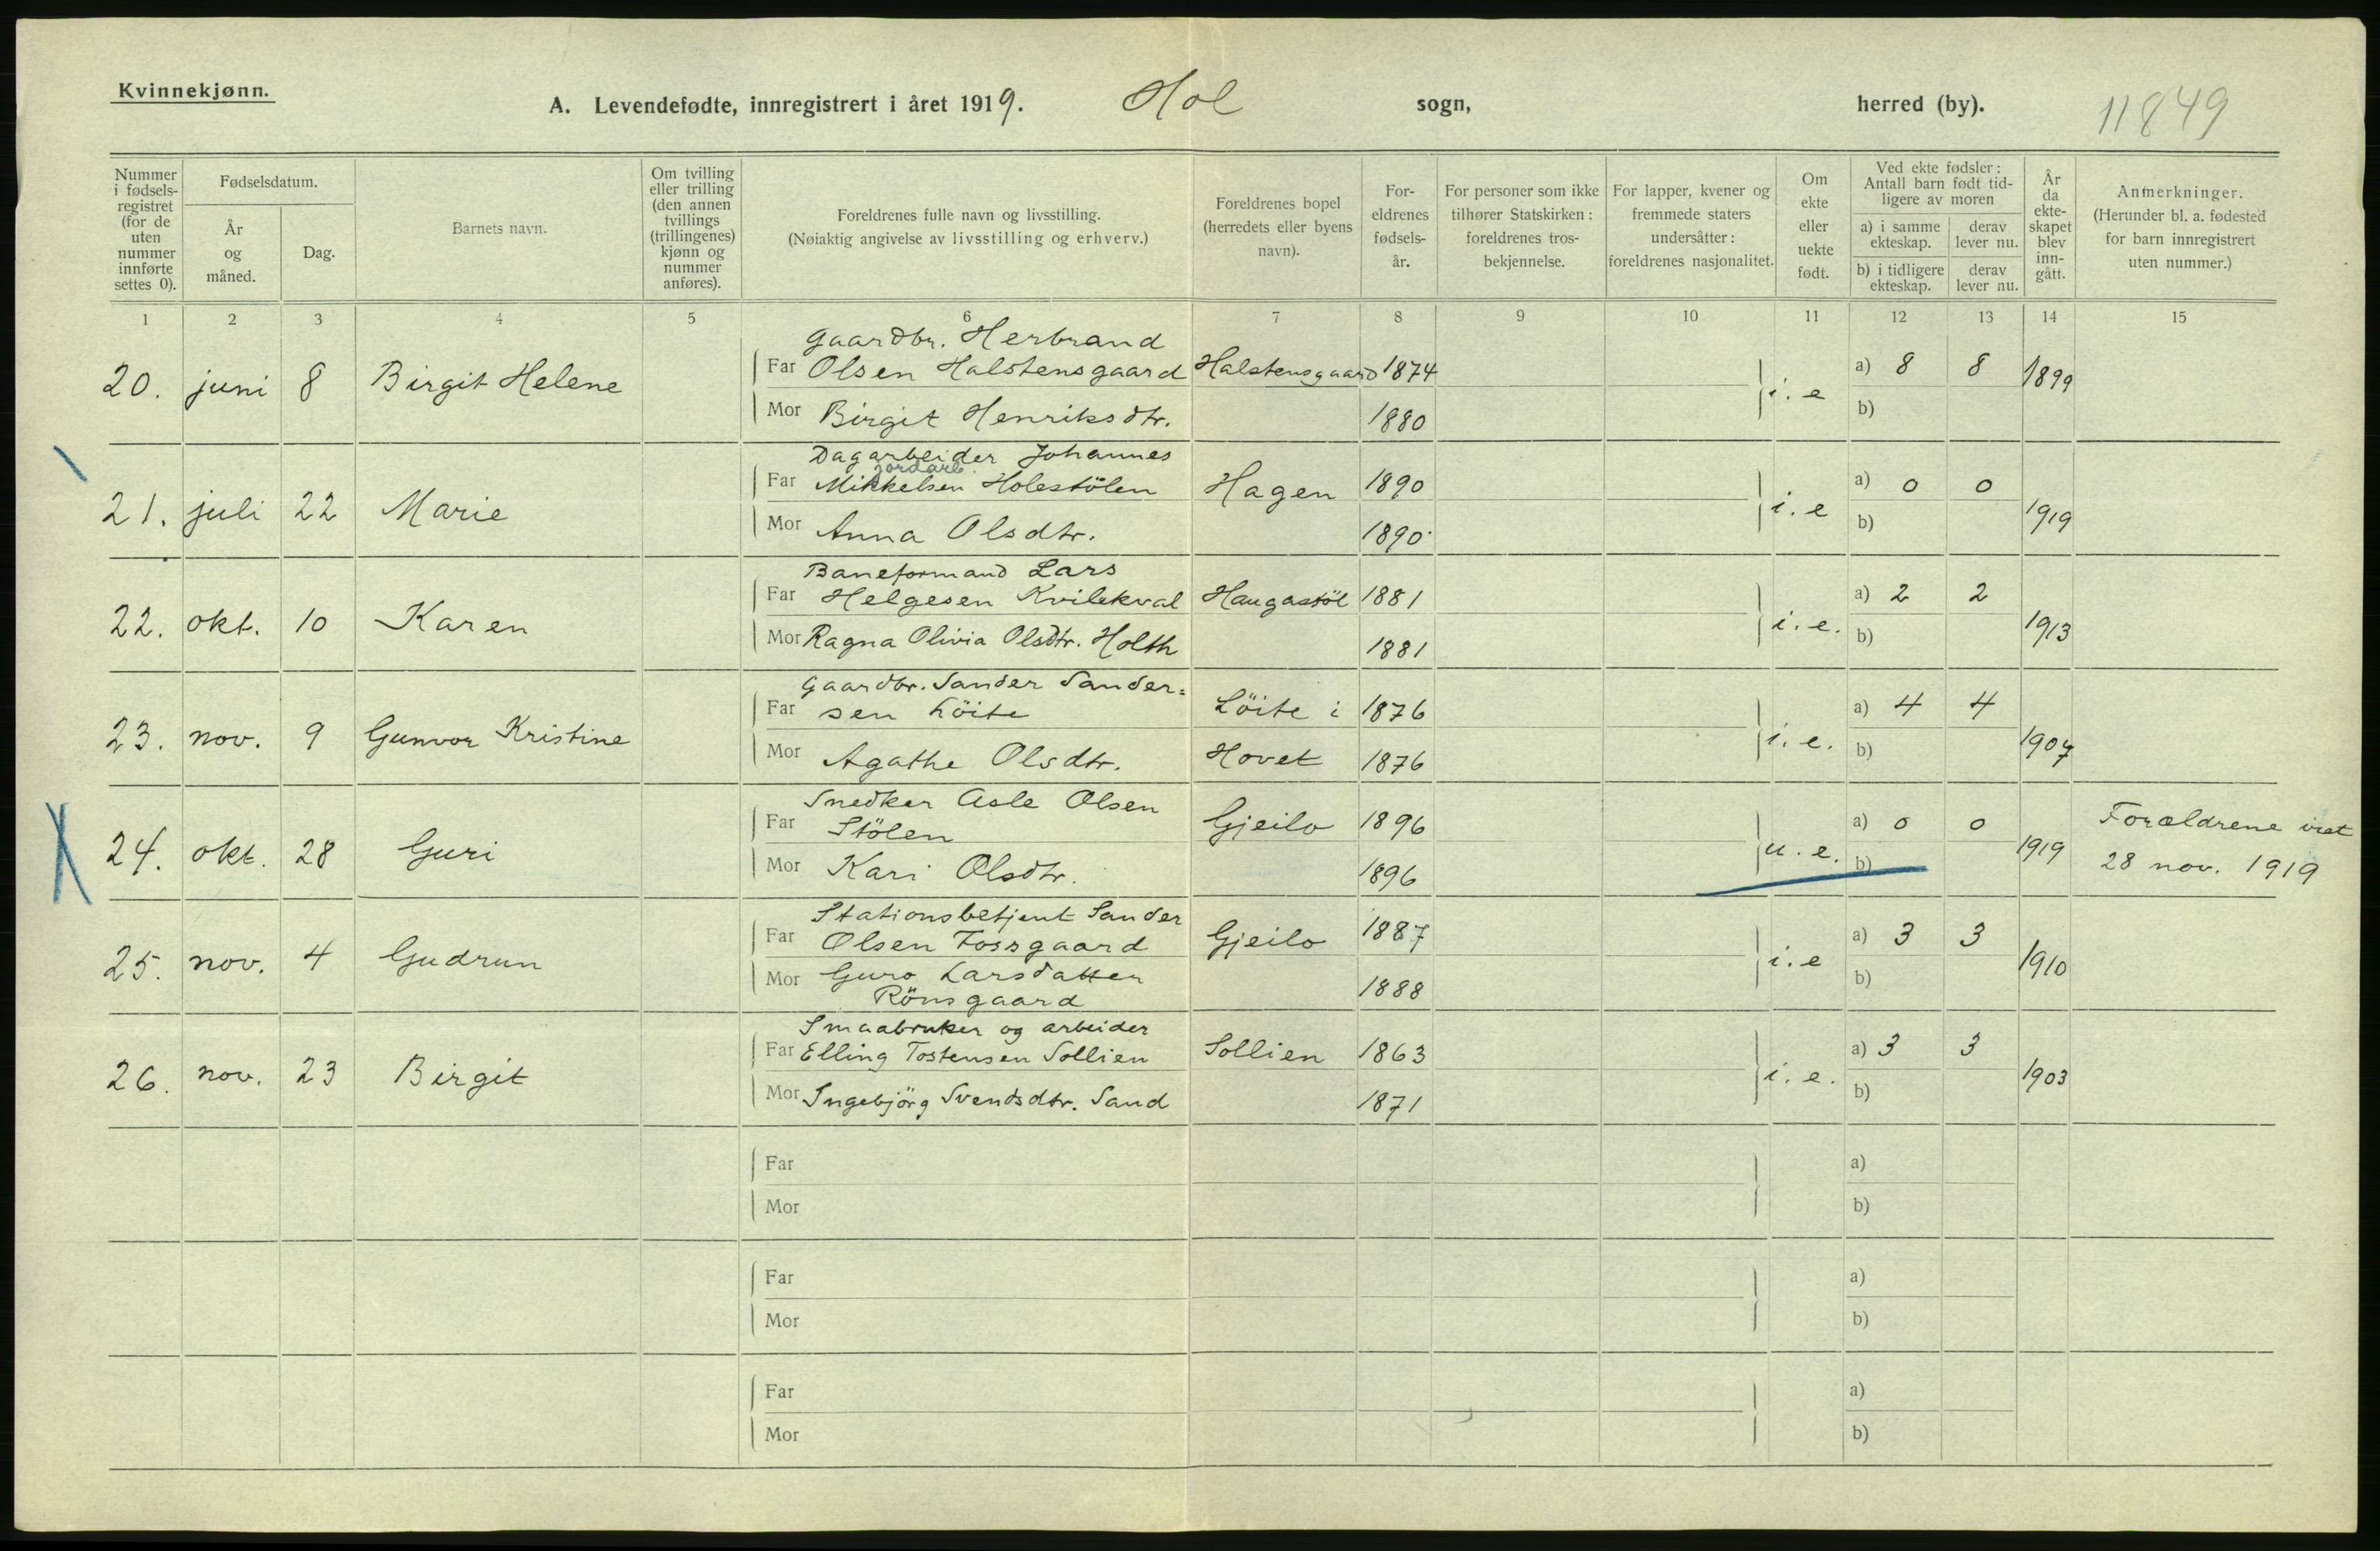 Kvinnekjønn.
A. Levendefødte, innregistrert i året 1919. Hol sogn, herred (by). 11849
Nummer i fødsels-registret (for de uten nummer innførte settes 0).
Fødselsdatum.
År og måned.
Dag.
Barnets navn.
Om tvilling eller trilling (den annen tvillings (trillingenes) kjønn og nummer anføres).
Foreldrenes fulle navn og livsstilling.
(Nøiaktig angivelse av livsstilling og erhverv.)
Foreldrenes bopel (herredets eller byens navn).
For-eldrenes fødsels-år.
For personer som ikke tilhører Statskirken: foreldrenes tros-bekjennelse.
For lapper, kvener og fremmede staters undersåtter: foreldrenes nasjonalitet.
Om ekte eller uekte født.
Ved ekte fødsler: Antall barn født tid-ligere av moren
a) i samme ekteskap.
derav lever nu.
b) i tidligere ekteskap.
derav lever nu.
År da ekte-skapet blev inn-gått.
Anmerkninger.
(Herunder bl. a. fødested for barn innregistrert uten nummer.)
1 2 3 4 5 6 7 8 9 10 11 12 13 14 15
Gaardbr. Herbrand
20. juni 8 Birgit Helene Far Olsen Halstensgaard Halstensgaard 1874 i. e a) 8 8 1899
Mor Birgit Henriksdtr. 1880 b)
Dagarbeider Johannes
jordarb.
21. juli 22 Marie Far Mikkelsen Holestölen Hagen 1890 i. e a) 0 0 1919
Mor Anna Olsdtr. 1890 b)
Baneformand Lars
22. okt. 10 Karen Far Helgesen Kvilekval Haugastöl 1881 i. e. a) 2 2 1913
Mor Ragna Olivia Olsdtr. Holth 1881 b)
Gaardbr. Sander Sander=
23. nov. 9 Gunvor Kristine Far sen Löite Löite i 1876 i. e. a) 4 4 1907
Mor Agathe Olsdtr. Hovet 1876 b)
Snedker Asle Olsen
24. okt. 28 Guri Far Stölen Gjeilo 1896 u. e. a) 0 0 1919 Forældrene viet
Mor Kari Olsdtr. 1896 b) 28 nov. 1919
Stationsbetjent Sander
25. nov. 4 Gudrun Far Olsen Fossgaard Gjeilo 1887 i. e a) 3 3 1910
Mor Guro Larsdatter 1888 b)
Rönsgaard
Smaabruker og arbeider
26. nov. 23 Birgit Far Elling Tostensen Sollien Sollien 1863 i. e. a) 3 3 1903
Mor Ingebjörg Svendsdtr. Sand 1871 b)
Far a)
Mor b)
Far a)
Mor b)
Far a)
Mor b)